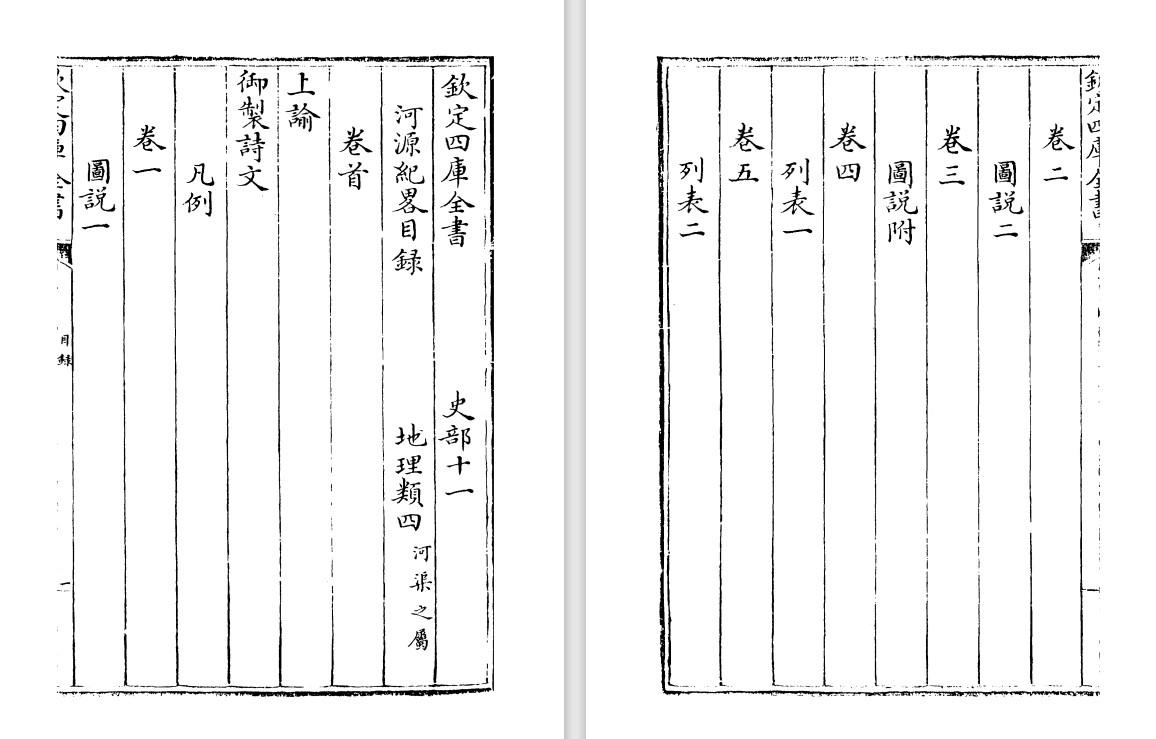 欽定四庫全書 史部十一
河源紀畧目録 地理類四 河渠之屬
卷首
上諭
御製詩文
凡例
卷一
圖説一
目録 一
欽定四庫全書
卷二
圖説二
卷三
圖説附
卷四
列表一
卷五
列表二